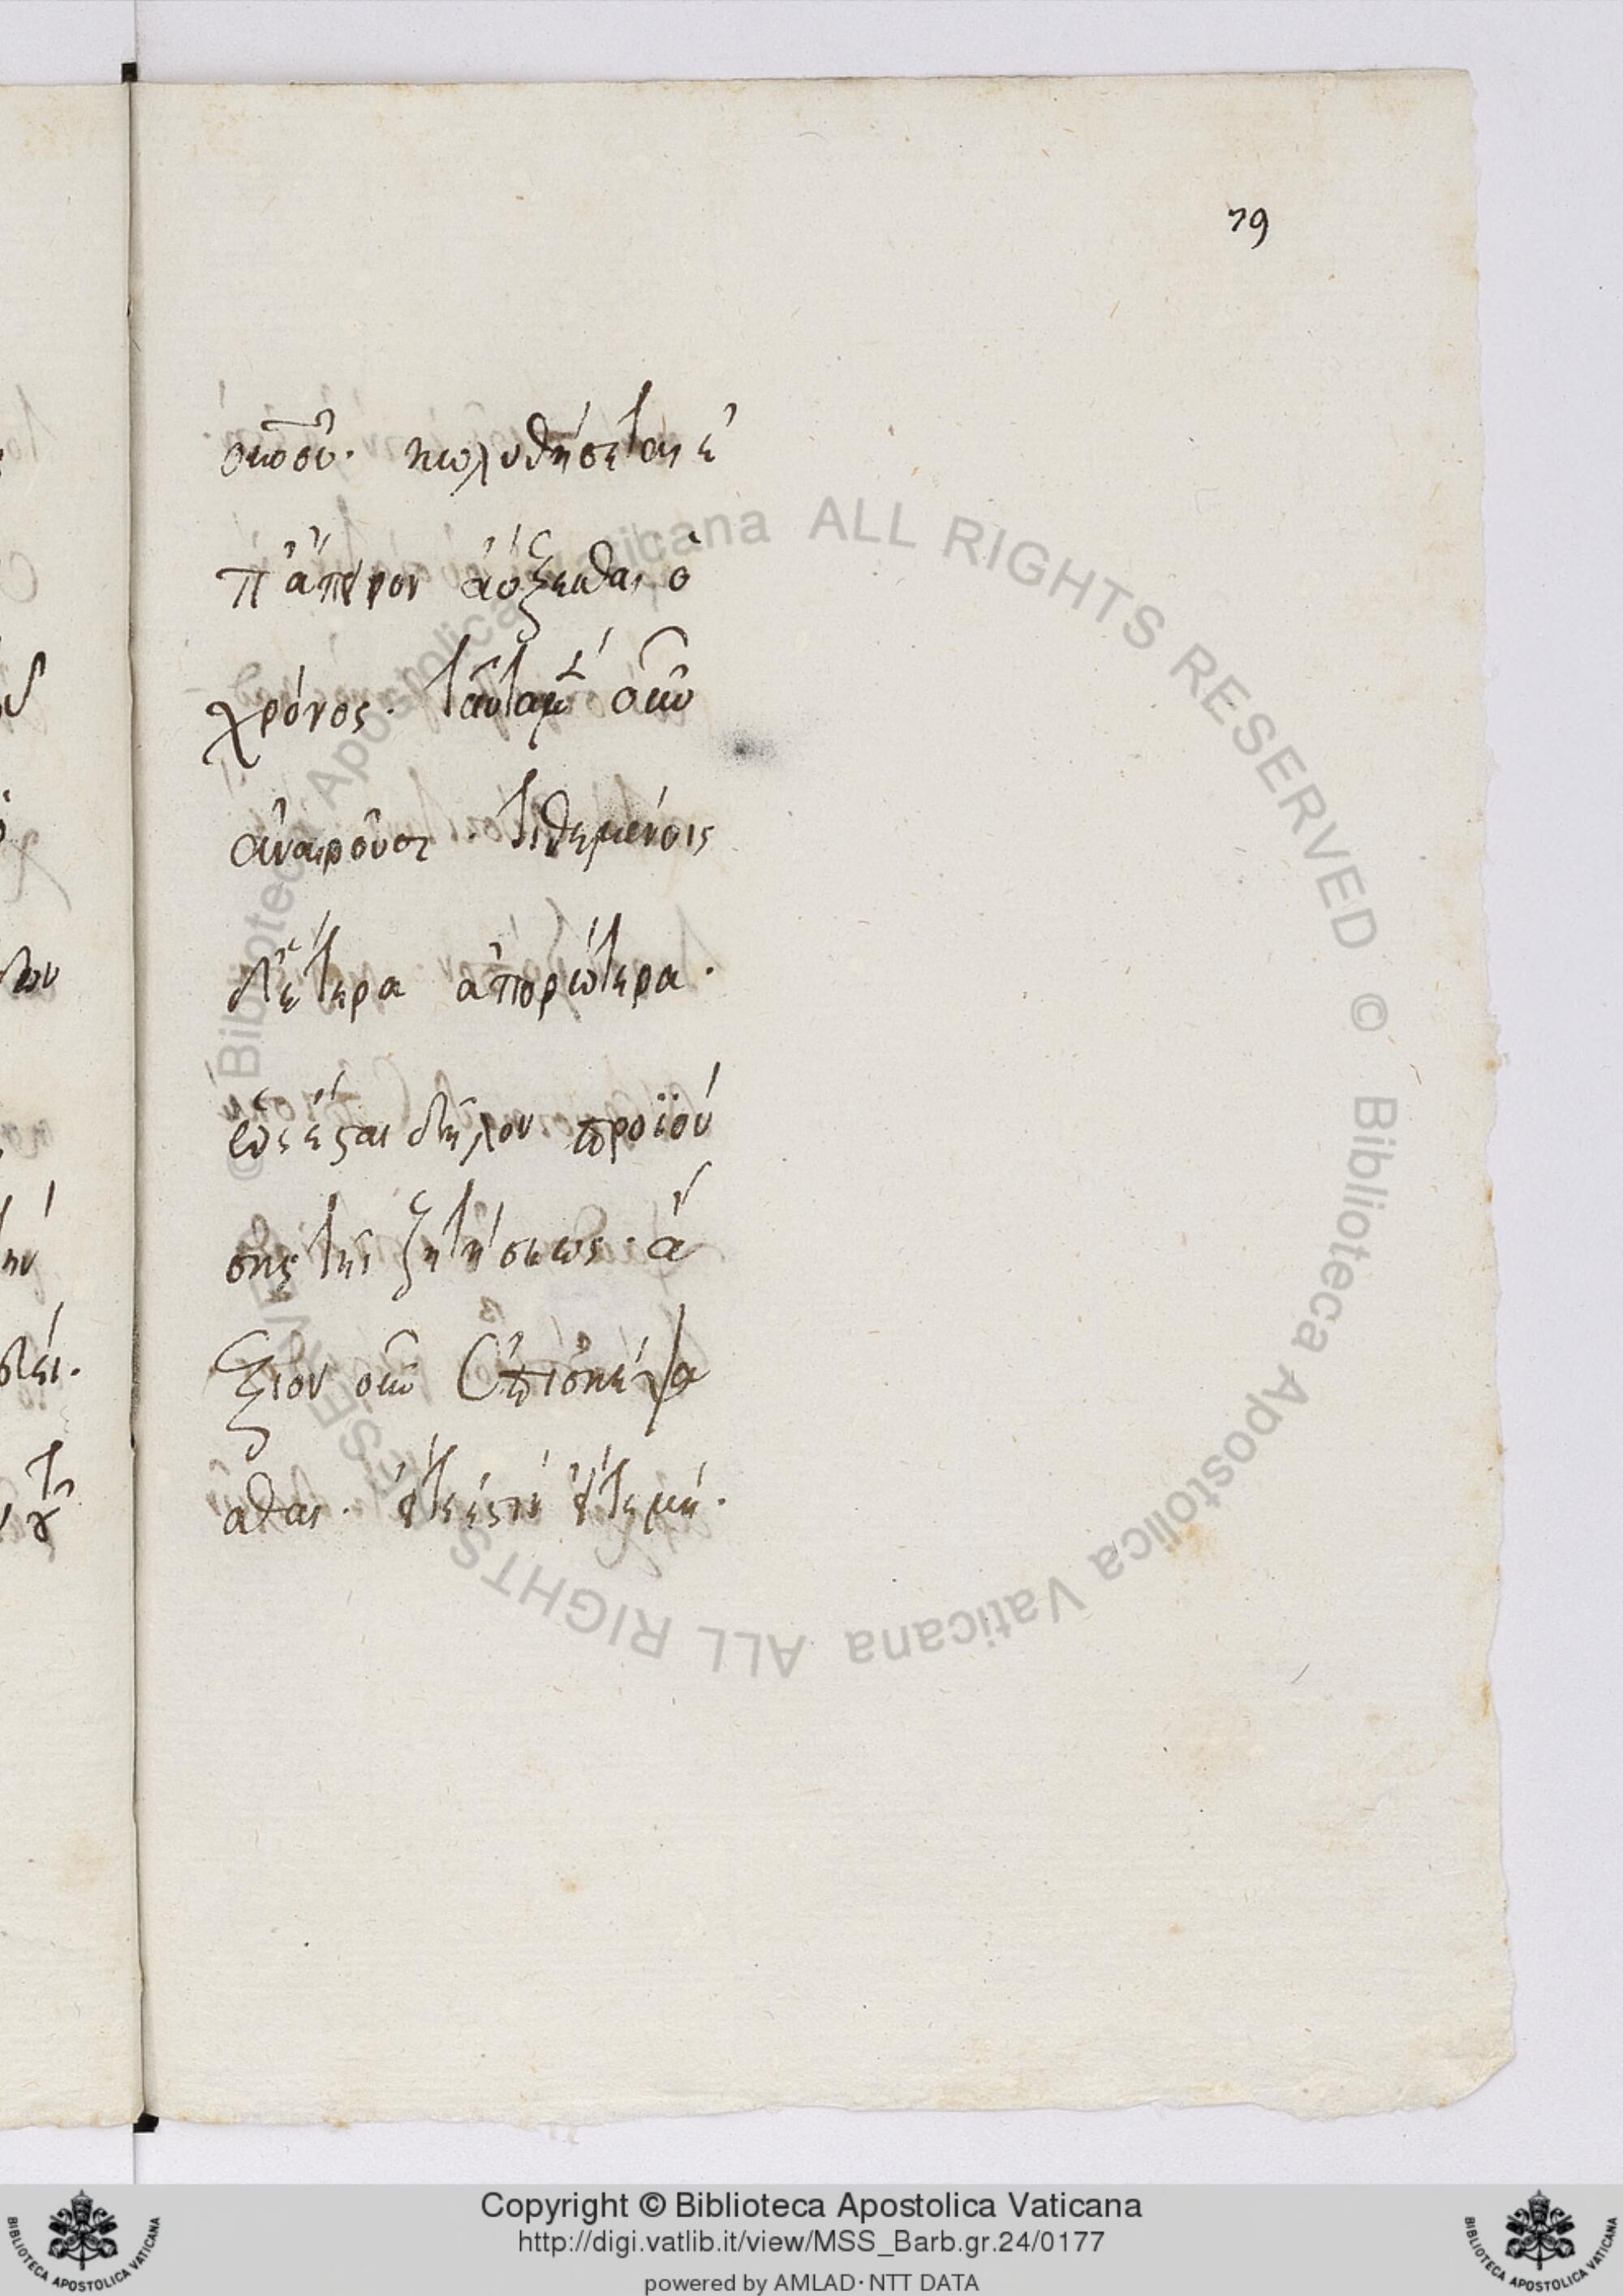 79
κωλυθήσεται ἐ
π' ἄπειρον αὔξεσθαι ὁ
χρόνος. ταῦτα μὲν οὖν
ἀναιροῦσι. τιθεμένοις
δ' ἕτερα ἀπορώτερα.
ἔσται δῆλον προϊού
σης τῆς ζητήσεως. ἄ
ξιον οὖν ἐπισκέψα
σθαι. εἴτε ἐστὶν εἴτε μή.
© Biblioteca Apostolica Vaticana ALL RIGHTS RESERVED © Biblioteca Apostolica Vaticana ALL RIGHTS RESERVED
Copyright © Biblioteca Apostolica Vaticana
http://digi.vatlib.it/view/MSS_Barb.gr.24/0177
powered by AMLAD·NTT DATA
BIBLIOTECA APOSTOLICA VATICANA
BIBLIOTECA APOSTOLICA VATICANA